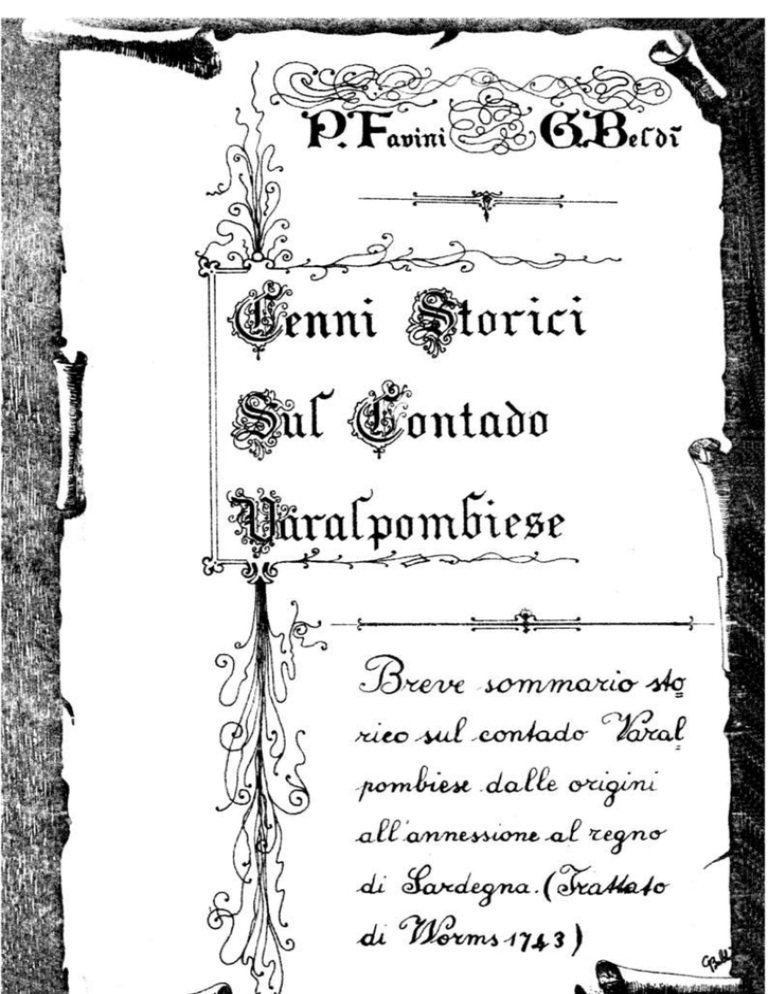 P. Favini G. Beldì
Cenni Storici
Sul Contado
Varalpombiese
Breve sommario sto
rico sul contado Varal
pombiese dalle origini
all'annessione al regno
di Sardegna. (Trattato
di Worms 1743)